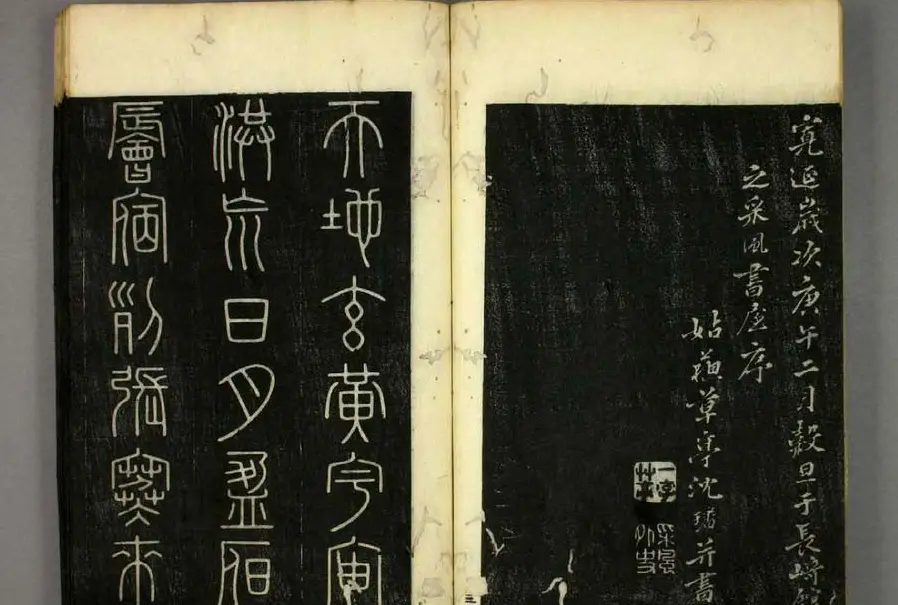 寛延歲次庚午二月穀旦于長崎館
之采風書屋序
姑蘇草亭沈璛并書
天地玄黃宇宙
洪荒日月盈昃
辰宿列張寒來